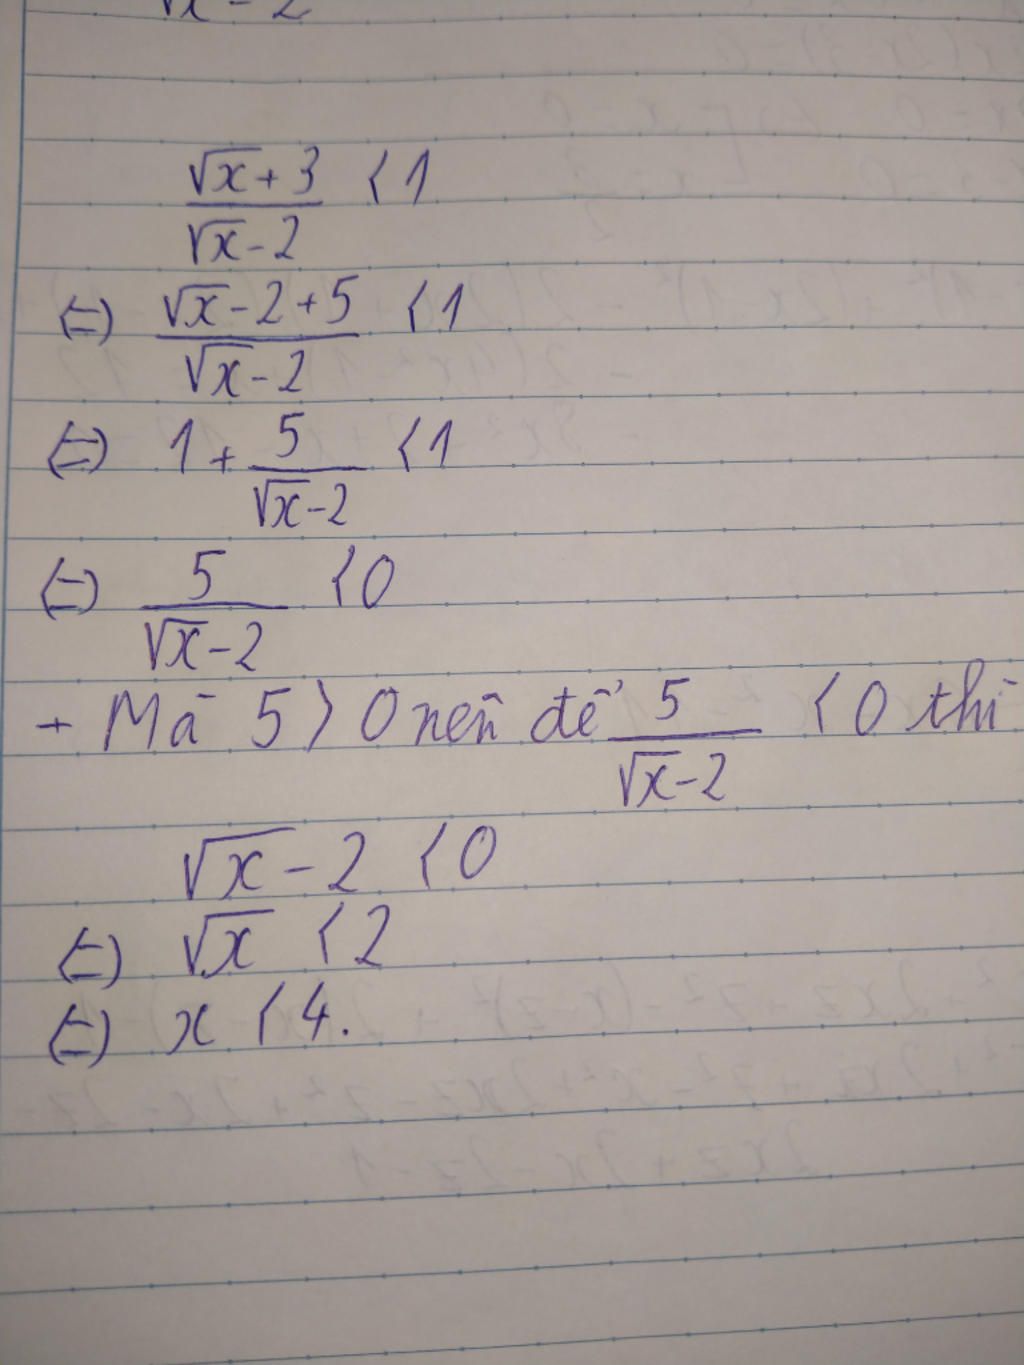 √x - 2
(√x + 3)/(√x - 2) < 1
(=) (√x - 2 + 5)/(√x - 2) < 1
(=) 1 + 5/(√x - 2) < 1
(=) 5/(√x - 2) < 0
+ Mà 5 > 0 nên để 5/(√x - 2) < 0 thì
√x - 2 < 0
(=) √x < 2
(=) x < 4.